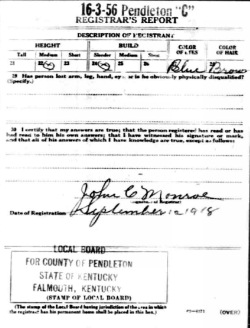 16-3-56 Pendleton "C"
REGISTRAR'S REPORT
DESCRIPTION OF REGISTRANT
HEIGHT BUILD COLOR OF EYES COLOR OF HAIR
Tall Medium Short Slender Medium Stout
21 22 23 24 25 26 Blue Brown
29 Has person lost arm, leg, hand, eye, or is he obviously physically disqualified?
(Specify.)
30 I certify that my answers are true; that the person registered has read or has
had read to him his own answers; that I have witnessed his signature or mark,
and that all of his answers of which I have knowledge are true, except as follows:
John C Monroe
Date of Registration September 12 1918
LOCAL BOARD
FOR COUNTY OF PENDLETON
STATE OF KENTUCKY
FALMOUTH, KENTUCKY
(STAMP OF LOCAL BOARD)
(The stamp of the Local Board having jurisdiction of the area in which
the registrant has his permanent home shall be placed in this box.)
(OVER)